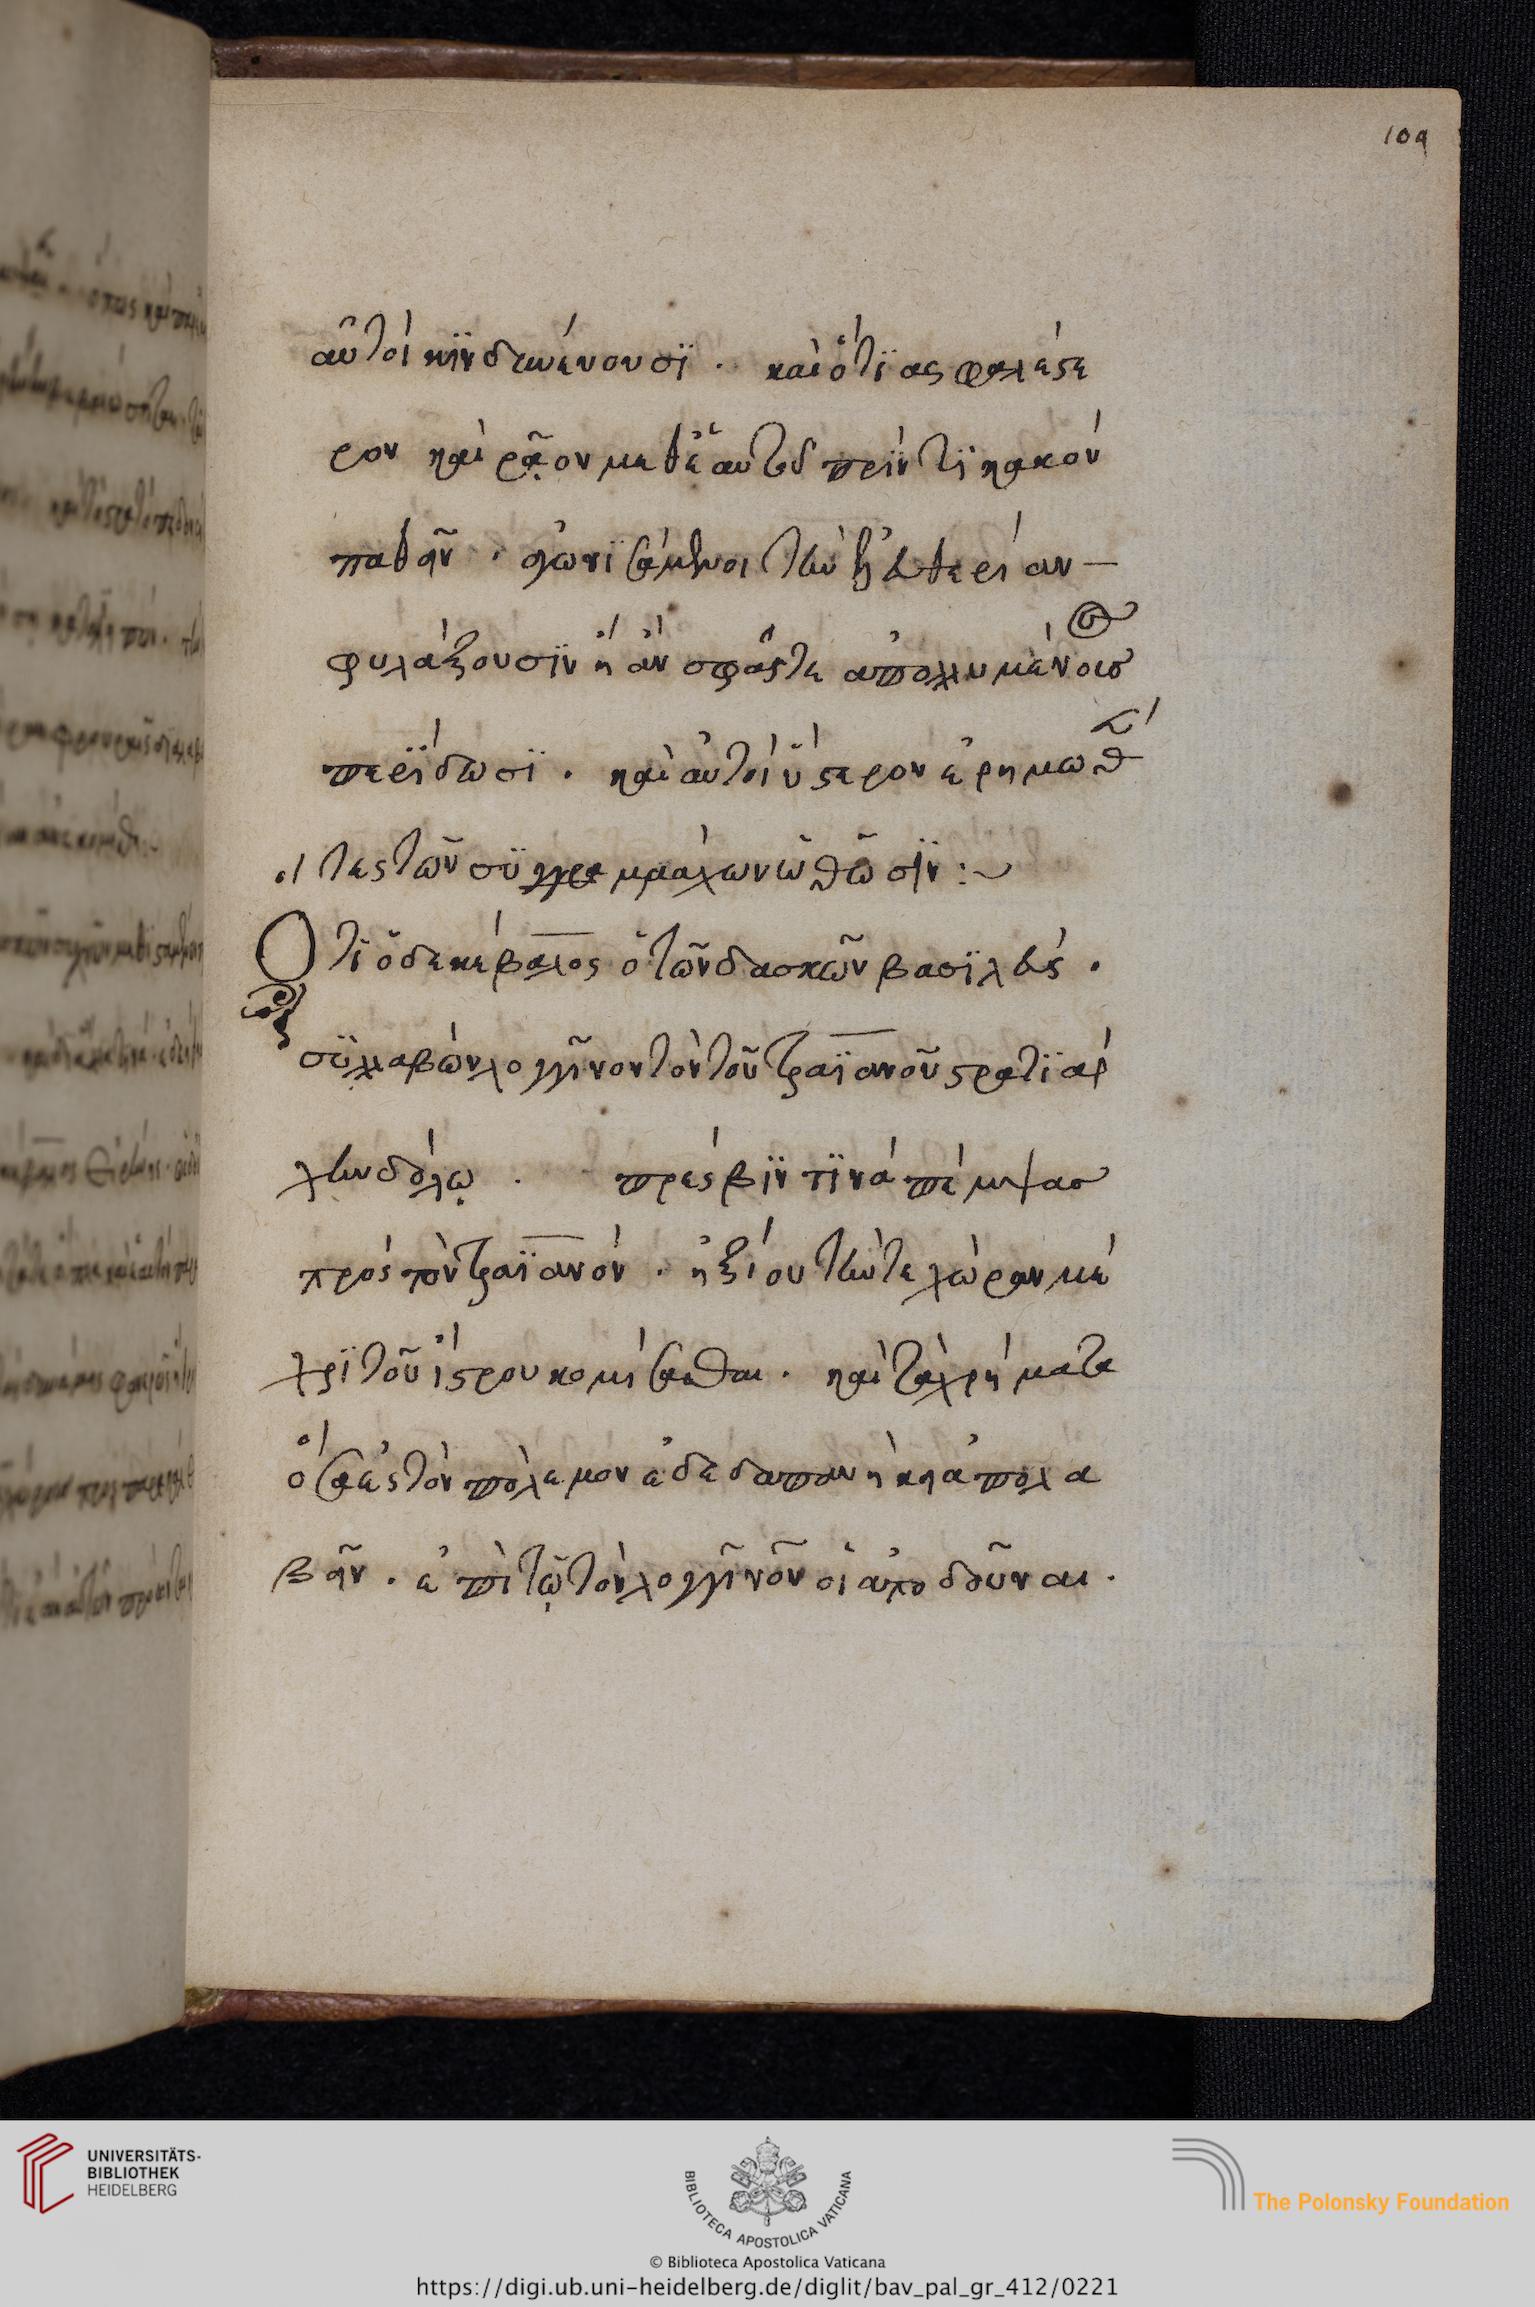 109
αὐτοὶ κϊνδυνεύουσϊ . καὶ ὅτϊ ἀσφαλέστε
ρον καὶ ρᾷον μεθ' ἑαυτοῦ πρίν τϊ κακόν
παθεῖν . ἀγωνϊσάμενοι τὴν ἐλευθερίαν
φυλάξουσϊν ἢ ἂν σφᾶς τε ἀπολλυμένους
περιΐδωσϊ . καὶ αὐτοὶ ὕστερον ἐρημωθέν
τες τῶν συμμάχων ὦσϊν :~
Ὅτϊ ὁ δεκέβαλος ὁ τῶν δακῶν βασϊλεύς .
συλλαβὼν λογγῖνον τὸν τοῦ τραϊανοῦ στρατϊάρ
χην δόλῳ . πρέσβϊν τϊνὰ πέμψας
πρὸς τὸν τραϊανόν . ἠξίου τήν τε χώραν μέ
χρϊ τοῦ ἴστρου κομίσασθαι . καὶ τὰ χρήματα
ὅσα ἐς τὸν πόλεμον ἐδεδαπανήκει ἀπολα
βεῖν . ἐπὶ τῷ τὸν λογγῖνόν οἱ ἀποδοῦναι .
UNIVERSITÄTS-
BIBLIOTHEK
HEIDELBERG
BIBLIOTECA APOSTOLICA VATICANA
The Polonsky Foundation
© Biblioteca Apostolica Vaticana
https://digi.ub.uni-heidelberg.de/diglit/bav_pal_gr_412/0221